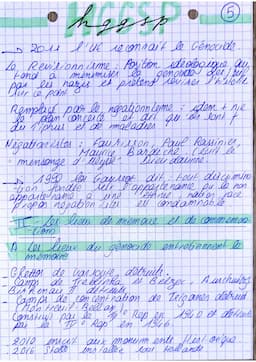 hggsp
5
→ 2011 l'UE reconnait le Génocide.
Le Révisionnisme : Position idéologique qui
tend à minimiser le génocide des Juifs
par les nazis et prétend réviser l'histoire
sur ce point.
Remplacé par le négationnisme : idem + nie
le plan concerté et dit qu'ils sont
du typhus et de maladies
Négationnistes : Faurisson, Paul Rassinier,
Maurice Bardèche
mensonge d'Ulysse
→ 1990 loi Gayssot dit, tout discrimina
tion fondée sur l'appartenance ou la non
appartenance à une nation race
négation est condamnable
II - Les lieux de mémoire et de commémora
tions
A Les lieux du génocide entretiennent la
mémoire
- Ghetto de Varsovie, détruit.
- Camps de Treblinka et Belzec, Auschwitz
Birkenau détruits
- Camps de concentration de Tziganes détruit
Montreuil-Bellay
Construit par la 3e Rep en 1940 et détruit
par la IVe Rep en 1946.
2010 inscrit aux monuments historique
2016 Stèle installée par Hollande